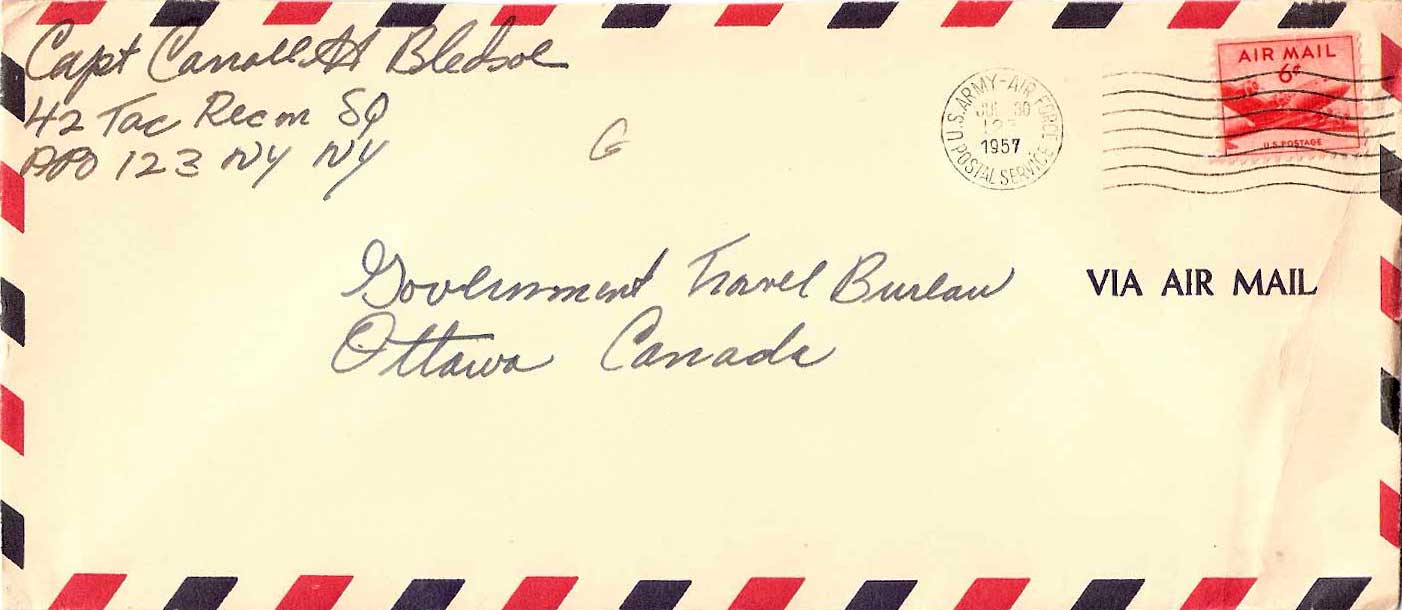 Capt Carroll H Bledsoe
42 Tac Recon SQ
APO 123 NY NY
G
U.S. ARMY-AIR FORCE
30
1957
POSTAL SERVICE
AIR MAIL
6¢
U.S. POSTAGE
Government Travel Bureau
Ottawa Canada
VIA AIR MAIL